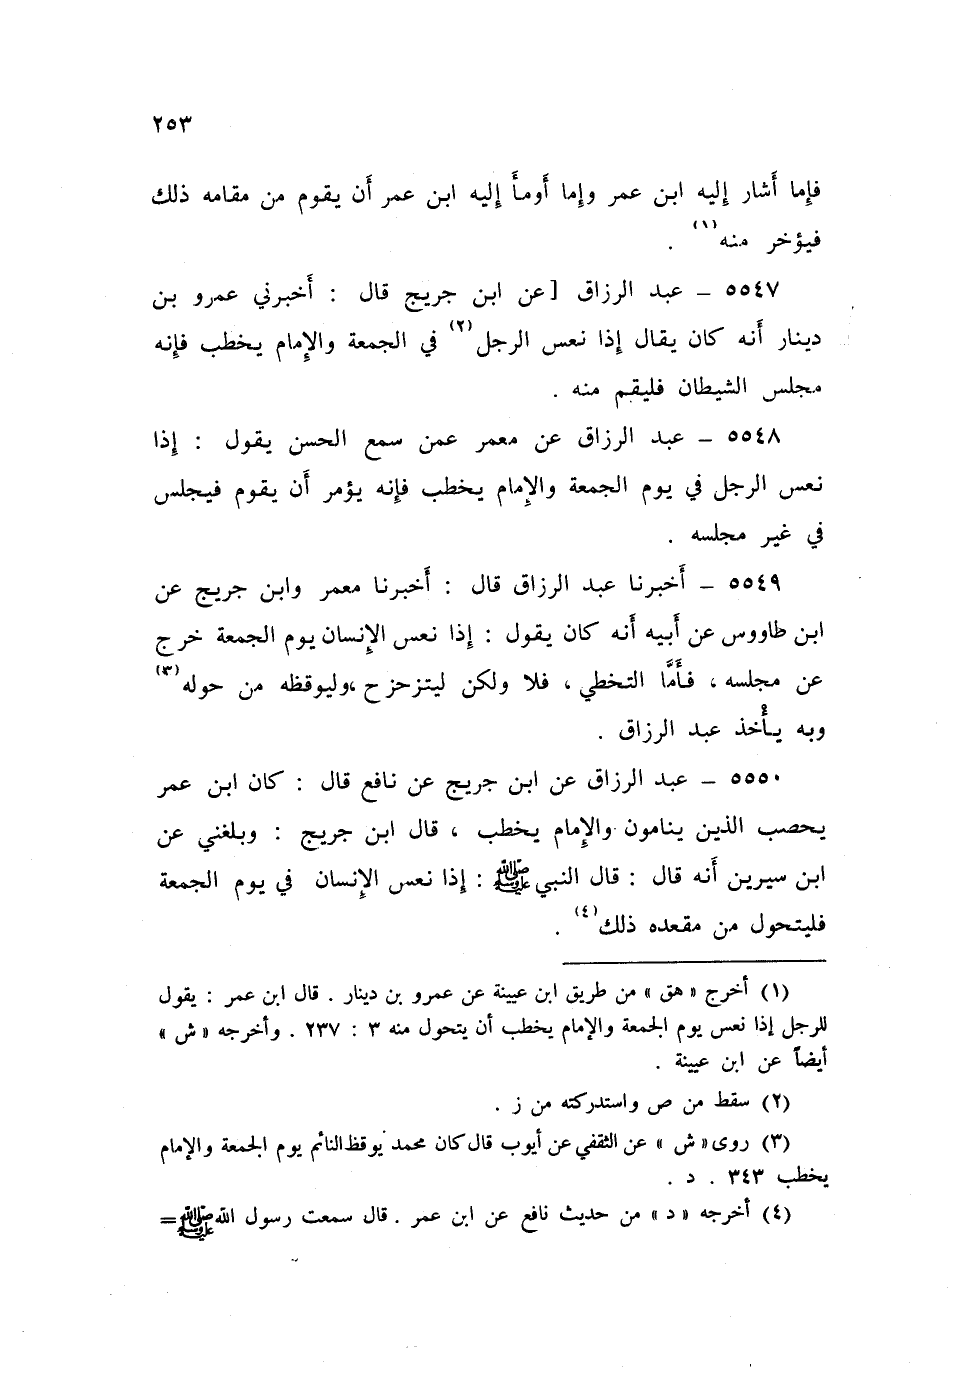 ٢٥٣
فإِما أَشار إِليه ابن عمر وإِما أَومأَ إِليه ابن عمر أَن يقوم من مقامه ذلك
فيؤخر منه(١) .
٥٥٤٧ – عبد الرزاق [عن ابن جريج قال : أَخبرني عمرو بن
دينار أَنه كان يقال إِذا نعس الرجل(٢) في الجمعة والإِمام يخطب فإِنه
مجلس الشيطان فليقم منه .
٥٥٤٨ – عبد الرزاق عن معمر عمن سمع الحسن يقول : إِذا
نعس الرجل في يوم الجمعة والإِمام يخطب فإِنه يؤمر أَن يقوم فيجلس
في غير مجلسه .
٥٥٤٩ – أَخبرنا عبد الرزاق قال : أَخبرنا معمر وابن جريج عن
ابن طاووس عن أَبيه أَنه كان يقول : إِذا نعس الإِنسان يوم الجمعة خرج
عن مجلسه ، فأَمَّا التخطي ، فلا ولكن ليتزحزح ،وليوقظه من حوله(٣)
وبه يأْخذ عبد الرزاق .
٥٥٥٠ – عبد الرزاق عن ابن جريج عن نافع قال : كان ابن عمر
يحصب الذين ينامون والإِمام يخطب ، قال ابن جريج : وبلغني عن
ابن سيرين أَنه قال : قال النبي ﷺ : إِذا نعس الإِنسان في يوم الجمعة
فليتحول من مقعده ذلك(٤) .
(١) أخرج «هق» من طريق ابن عيينة عن عمرو بن دينار . قال ابن عمر : يقول
للرجل إذا نعس يوم الجمعة والإمام يخطب أن يتحول منه ٣ : ٢٣٧ . وأخرجه «ش»
أيضاً عن ابن عيينة .
(٢) سقط من ص واستدركته من ز .
(٣) روى «ش» عن الثقفي عن أيوب قال كان محمد يوقظ النائم يوم الجمعة والإمام
يخطب ٣٤٣ . د .
(٤) أخرجه «د» من حديث نافع عن ابن عمر . قال سمعت رسول الله ﷺ =